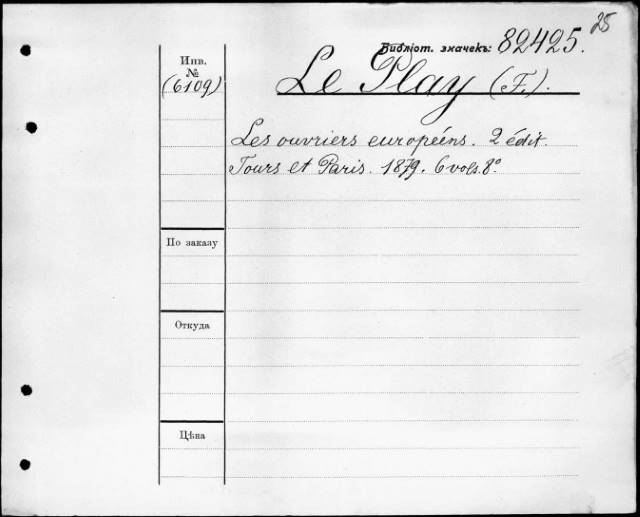 25
Библіот. значекъ: 82425.
Инв.
№
(6109)
Le Play (F.).
Les ouvriers européens. 2 édit.
Tours et Paris. 1879. 6 vols. 8º
По заказу
Откуда
Цѣна